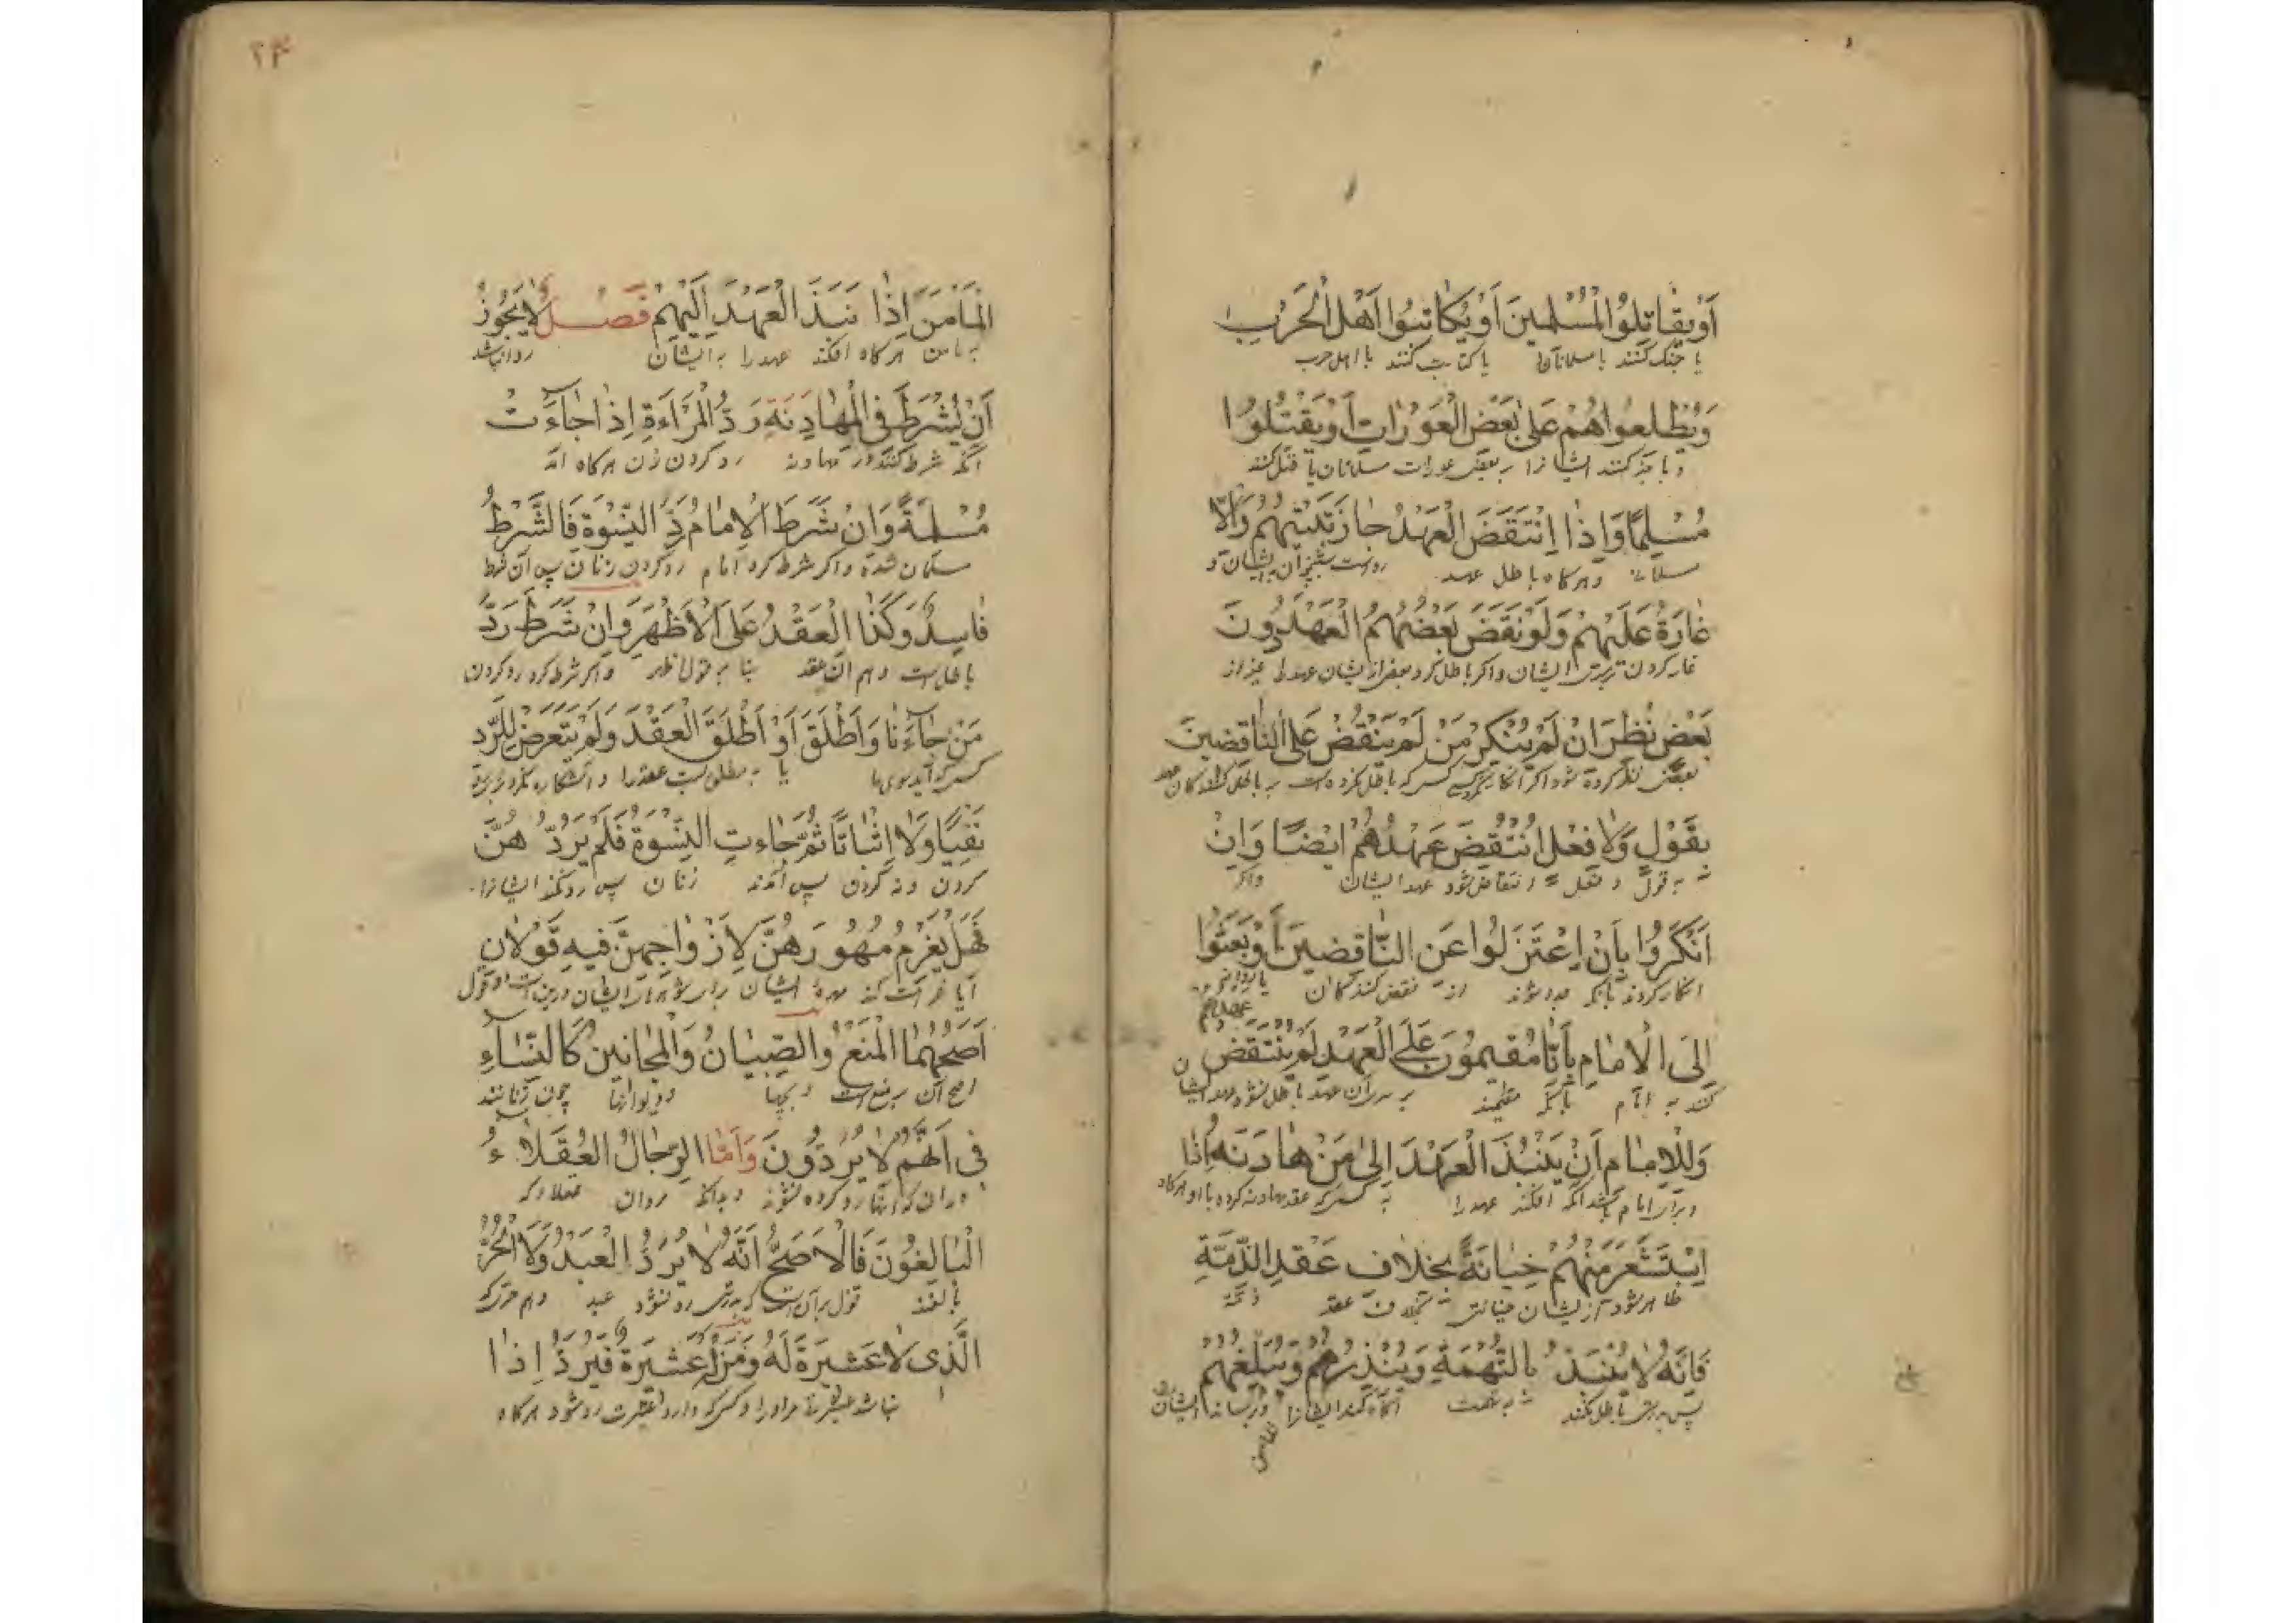 أَوْ يُقَاتِلُوا الْمُسْلِمِينَ أَوْ يُكَاتِبُوا أَهْلَ الْحَرْبِ
یا جنک کنند با مسلمانان یا کتابت کنند با اهل حرب
وَيُطْلِعُوا هُمْ عَلَى بَعْضِ الْعَوْرَاتِ أَوْ يَقْتُلُوا
و با خبر کنند ایشانرا ببعض عورات مسلمانان یا قتل کنند
مُسْلِمًا وَإِذَا اِنْتَقَضَ الْعَهْدُ جَازَ تَبْيِيتُهُمْ وَالْا
مسلمانی و هرکاه باطل عهد رواست
غَارَةُ عَلَيْهِمْ وَلَوْ نَقَضَ بَعْضُهُمُ الْعَهْدَ دُونَ
غارت کردن ایشان و اکر باطل کرد بعض از ایشان عهد را غیر از
بَعْضٍ نُظِرَ اِنْ لَمْ يُنْكِرْ مَنْ لَمْ يَنْقُضْ عَلَى النَّاقِضِينَ
بعض نظر کرده شود اکر انکار نکرد کسی که باطل نکرده است
بِقَوْلٍ وَلَا فِعْلٍ انْتُقِضَ عَهْدُهُمْ اَيْضًا وَاِنْ
به قول و فعل انتقاض شود عهد ایشان واکر
اَنْكَرُوا بِأَنْ اِعْتَزَلُوا عَنِ النَّاقِضِينَ اَوْ بَعَثُوا
انکار کردند بانکه جدا شوند از نقض کنندکان
عهدهم
إِلَى الْاِمَامِ بِأَنَّا مُقِيمُونَ عَلَى الْعَهْدِ لَمْ يَنْتَقِضْ
کنند به امام بانکه مقیمند بران عهد باطل نشود عهد ایشان
وَلِلْاِمَامِ اَنْ يَنْبُذَ الْعَهْدَ اِلَى مَنْ هَادَنَهُ اِذَا
و برای امام باشد انکه افکند عهد را به کسی که عقد مهادنه کرده با او هرکاه
اِسْتَشْعَرَ مِنْهُمْ خِيَانَةً بِخِلَافِ عَقْدِ الذِّمَّةِ
ظاهر شود از ایشان خیانتی بخلاف عقد ذمّه
فَاِنَّهُ لَا يُنْبَذُ بِالتُّهْمَةِ وَيُنْذِرُهُمْ وَيُبَلِّغُهُمُ
پس بدرستی باطل نکند به تهمت آکاه کند ایشانرا و برساند ایشان
۲۴
الْمَأْمَنَ اِذَا نَبَذَ الْعَهْدَ اِلَيْهِمْ فَصْلٌ لَا يَجُوزُ
به مامن هرکاه افکند عهد را به ایشان روا نباشد
اَنْ يُشْرَطَ فِي الْمُهَادَنَةِ رَدُّ الْمَرْاَةِ اِذَا جَاءَتْ
انکه شرط کنند در مهادنه رد کردن زن هرکاه آمد
مُسْلِمَةً وَاِنْ شَرَطَ الْاِمَامُ رَدَّ النِّسْوَةِ فَالشَّرْطُ
مسلمان شده و اکر شرط کرد امام رد کردن زنان پس آن شرط
فَاسِدٌ وَكَذَا الْعَقْدُ عَلَى الْاَظْهَرِ وَاِنْ شَرَطَ رَدَّ
باطل است و هم آن عقد بنا به قول اظهر و اکر شرط کرد رد کردن
مَنْ جَاءَنَا وَاَطْلَقَ اَوْ اَطْلَقَ الْعَقْدَ وَلَمْ يَتَعَرَّضْ لِلرَّدِّ
کسی که آید بسوی ما یا عقد را
نَفْيًا وَلَا اِثْبَاتًا ثُمَّ جَاءَتِ النِّسْوَةُ فَلَمْ يَرُدَّ هُنَّ
کردن و نه کردن پس آمدند زنان پس رد نکند ایشانرا
فَهَلْ يَغْرَمُ مُهُورَهُنَّ لِاَزْوَاجِهِنَّ فِيهِ قَوْلَانِ
آیا غرامت کند مهر ایشان برای شوهران ایشان درین است دو قول
اَصَحُّهُمَا الْمَنْعُ وَالصِّبْيَانُ وَالْمَجَانِينُ كَالنِّسَاءِ
اصح آن منع است و بچها و دیوانها چون زنانند
فِي اَنَّهُمْ لَا يُرَدُّونَ وَاَمَّا الرِّجَالُ الْعُقَلَاءُ
در آن که آنها رد کرده نشوند و بدانکه مردان عقلا که
الْبَالِغُونَ فَالْاَصَحُّ اَنَّهُ لَا يُرَدُّ الْعَبْدُ وَلَا الْحُرُّ
بالغند قول بر آن است که رد نشود عبد و هم حر که
الَّذِي لَا عَشِيرَةَ لَهُ وَمَنْ لَهُ عَشِيرَةٌ فَيُرَدُّ اِذَا
نباشد مر او را و کسی که دارد رد شود هرکاه